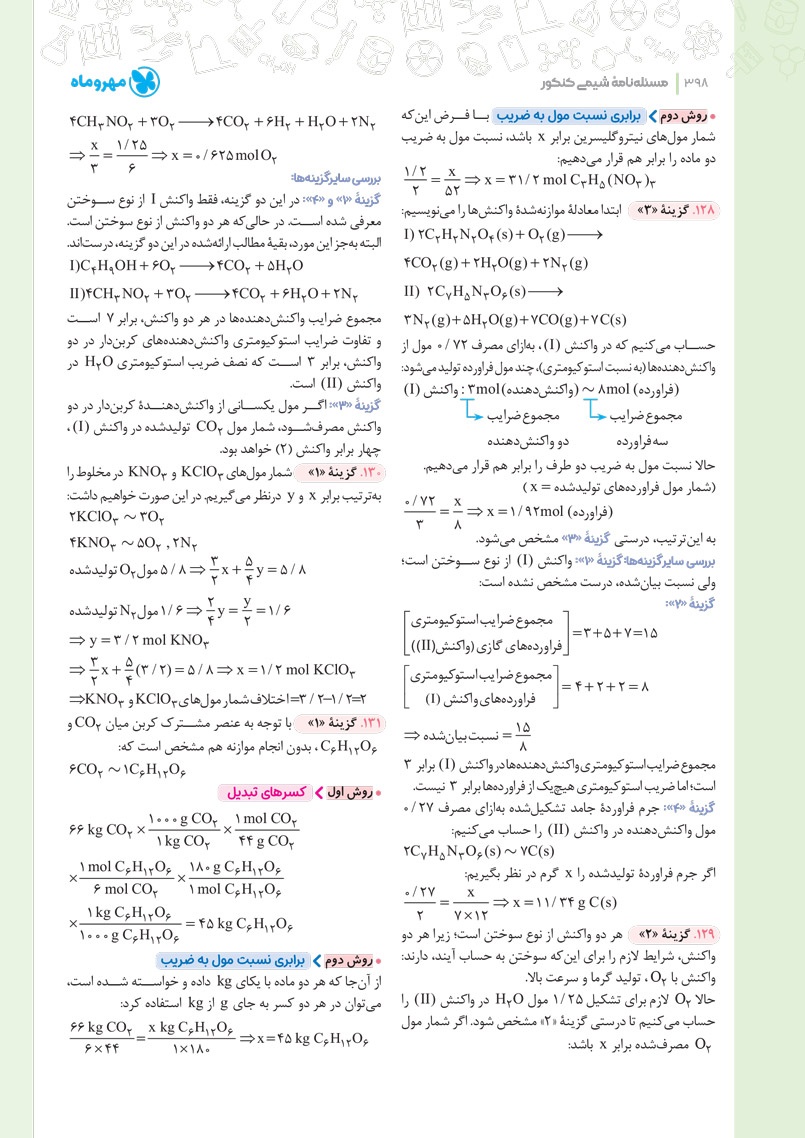 ۳۹۸ | مسئله‌نامهٔ شیمی کنکور
مهروماه
• روش دوم ❯ برابری نسبت مول به ضریب با فرض این‌که
شمار مول‌های نیتروگلیسرین برابر x باشد، نسبت مول به ضریب
دو ماده را برابر هم قرار می‌دهیم:
۱/۲ / ۲ = x / ۵۲ ⇒ x = ۳۱/۲ mol C₃H₅(NO₃)₃
۱۲۸. گزینهٔ «۳» ابتدا معادلهٔ موازنه‌شدهٔ واکنش‌ها را می‌نویسیم:
I) ۲C₂H₂N₂O₄(s) + O₂(g) ⟶
۴CO₂(g) + ۲H₂O(g) + ۲N₂(g)
II) ۲C₇H₅N₃O₆(s) ⟶
۳N₂(g) + ۵H₂O(g) + ۷CO(g) + ۷C(s)
حساب می‌کنیم که در واکنش (I)، به‌ازای مصرف ۰/۷۲ مول از
واکنش‌دهنده‌ها (به نسبت استوکیومتری)، چند مول فراورده تولید می‌شود:
(فراورده) ۸mol ∼ (واکنش‌دهنده) ۳mol : واکنش (I)
مجموع ضرایب مجموع ضرایب
سه فراورده دو واکنش‌دهنده
حالا نسبت مول به ضریب دو طرف را برابر هم قرار می‌دهیم.
(شمار مول فراورده‌های تولیدشده = x)
۰/۷۲ / ۳ = x / ۸ ⇒ x = ۱/۹۲ mol (فراورده)
به این‌ترتیب، درستی گزینهٔ «۳» مشخص می‌شود.
بررسی سایر گزینه‌ها: گزینهٔ «۱»: واکنش (I) از نوع سوختن است؛
ولی نسبت بیان‌شده، درست مشخص نشده است:
گزینهٔ «۲»:
[مجموع ضرایب استوکیومتری
فراورده‌های گازی (واکنش(II))] = ۳+۵+۷=۱۵
[مجموع ضرایب استوکیومتری
فراورده‌های واکنش (I)] = ۴+۲+۲=۸
⇒ نسبت بیان‌شده = ۱۵ / ۸
مجموع ضرایب استوکیومتری واکنش‌دهنده‌ها در واکنش (I) برابر ۳
است؛ اما ضریب استوکیومتری هیچ‌یک از فراورده‌ها برابر ۳ نیست.
گزینهٔ «۴»: جرم فراوردهٔ جامد تشکیل‌شده به‌ازای مصرف ۰/۲۷
مول واکنش‌دهنده در واکنش (II) را حساب می‌کنیم:
۲C₇H₅N₃O₆(s) ∼ ۷C(s)
اگر جرم فراوردهٔ تولیدشده را x گرم در نظر بگیریم:
۰/۲۷ / ۲ = x / ۷×۱۲ ⇒ x = ۱۱/۳۴ g C(s)
۱۲۹. گزینهٔ «۲» هر دو واکنش از نوع سوختن است؛ زیرا هر دو
واکنش، شرایط لازم را برای این‌که سوختن به حساب آیند، دارند:
واکنش با O₂، تولید گرما و سرعت بالا.
حالا O₂ لازم برای تشکیل ۱/۲۵ مول H₂O در واکنش (II) را
حساب می‌کنیم تا درستی گزینهٔ «۲» مشخص شود. اگر شمار مول
O₂ مصرف‌شده برابر x باشد:
۴CH₃NO₂ + ۳O₂ ⟶ ۴CO₂ + ۶H₂ + H₂O + ۲N₂
⇒ x / ۳ = ۱/۲۵ / ۶ ⇒ x = ۰/۶۲۵ mol O₂
بررسی سایر گزینه‌ها:
گزینهٔ «۱» و «۴»: در این دو گزینه، فقط واکنش I از نوع سوختن
معرفی شده است. در حالی‌که هر دو واکنش از نوع سوختن است.
البته به‌جز این مورد، بقیهٔ مطالب ارائه‌شده در این دو گزینه، درست‌اند.
I) C₄H₉OH + ۶O₂ ⟶ ۴CO₂ + ۵H₂O
II) ۴CH₃NO₂ + ۳O₂ ⟶ ۴CO₂ + ۶H₂O + ۲N₂
مجموع ضرایب واکنش‌دهنده‌ها در هر دو واکنش، برابر ۷ است
و تفاوت ضرایب استوکیومتری واکنش‌دهنده‌های کربن‌دار در دو
واکنش، برابر ۳ است که نصف ضریب استوکیومتری H₂O در
واکنش (II) است.
گزینهٔ «۳»: اگر مول یکسانی از واکنش‌دهندهٔ کربن‌دار در دو
واکنش مصرف‌شود، شمار مول CO₂ تولیدشده در واکنش (I)،
چهار برابر واکنش (۲) خواهد بود.
۱۳۰. گزینهٔ «۱» شمار مول‌های KClO₃ و KNO₃ در مخلوط را
به‌ترتیب برابر x و y درنظر می‌گیریم. در این صورت خواهیم داشت:
۲KClO₃ ∼ ۳O₂
۴KNO₃ ∼ ۵O₂ , ۲N₂
۵/۸ مول O₂ تولیدشده ⇒ ۳/۲ x + ۵/۴ y = ۵/۸
۱/۶ مول N₂ تولیدشده ⇒ ۲/۴ y = y/۲ = ۱/۶
⇒ y = ۳/۲ mol KNO₃
⇒ ۳/۲ x + ۵/۴ (۳/۲) = ۵/۸ ⇒ x = ۱/۲ mol KClO₃
⇒ اختلاف شمار مول‌های KClO₃ و KNO₃ = ۳/۲−۱/۲=۲
۱۳۱. گزینهٔ «۱» با توجه به عنصر مشترک کربن میان CO₂ و
C₆H₁₂O₆، بدون انجام موازنه هم مشخص است که:
۶CO₂ ∼ ۱C₆H₁₂O₆
• روش اول ❯ کسرهای تبدیل
۶۶ kg CO₂ × ۱۰۰۰ g CO₂ / ۱ kg CO₂ × ۱ mol CO₂ / ۴۴ g CO₂
× ۱ mol C₆H₁₂O₆ / ۶ mol CO₂ × ۱۸۰ g C₆H₁₂O₆ / ۱ mol C₆H₁₂O₆
× ۱ kg C₆H₁₂O₆ / ۱۰۰۰ g C₆H₁₂O₆ = ۴۵ kg C₆H₁₂O₆
• روش دوم ❯ برابری نسبت مول به ضریب
از آن‌جا که هر دو ماده با یکای kg داده و خواسته شده است،
می‌توان در هر دو کسر به جای g از kg استفاده کرد:
۶۶ kg CO₂ / ۶×۴۴ = x kg C₆H₁₂O₆ / ۱×۱۸۰ ⇒ x = ۴۵ kg C₆H₁₂O₆